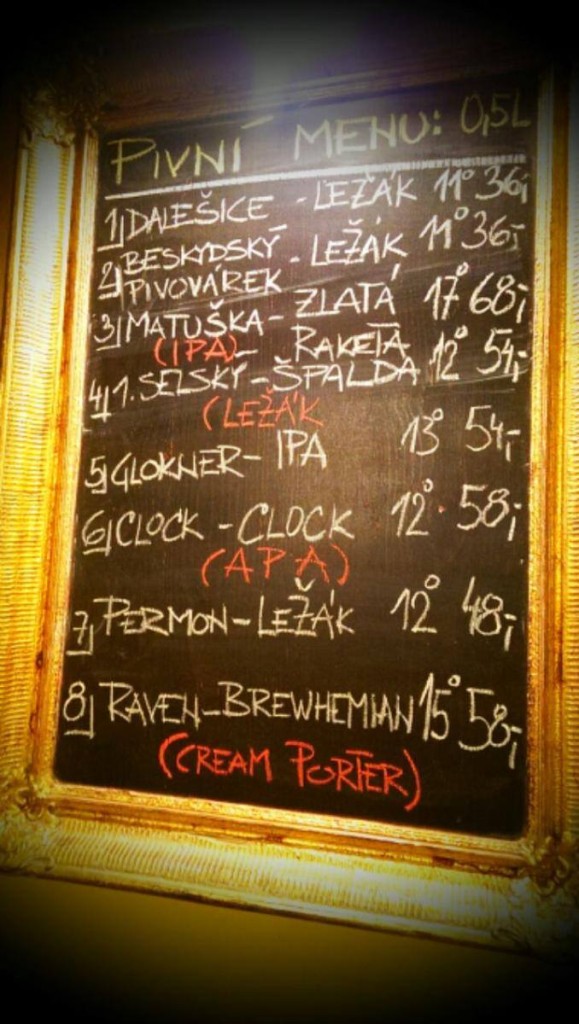 PIVNÍ MENU: 0,5L
1) DALEŠICE - LEŽÁK 11° 36,-
2) BESKYDSKÝ PIVOVÁREK - LEŽÁK 11° 36,-
3) MATUŠKA - ZLATÁ 17° 68,-
(IPA) - RAKETA
4) 1. SELSKÝ - ŠPALDA 12° 54,-
(LEŽÁK
5) GLOKNER - IPA 13° 54,-
6) CLOCK - CLOCK 12° 58,-
(APA)
7) PERMON - LEŽÁK 12° 48,-
8) RAVEN - BREWHEMIAN 15° 58,-
(CREAM PORTER)